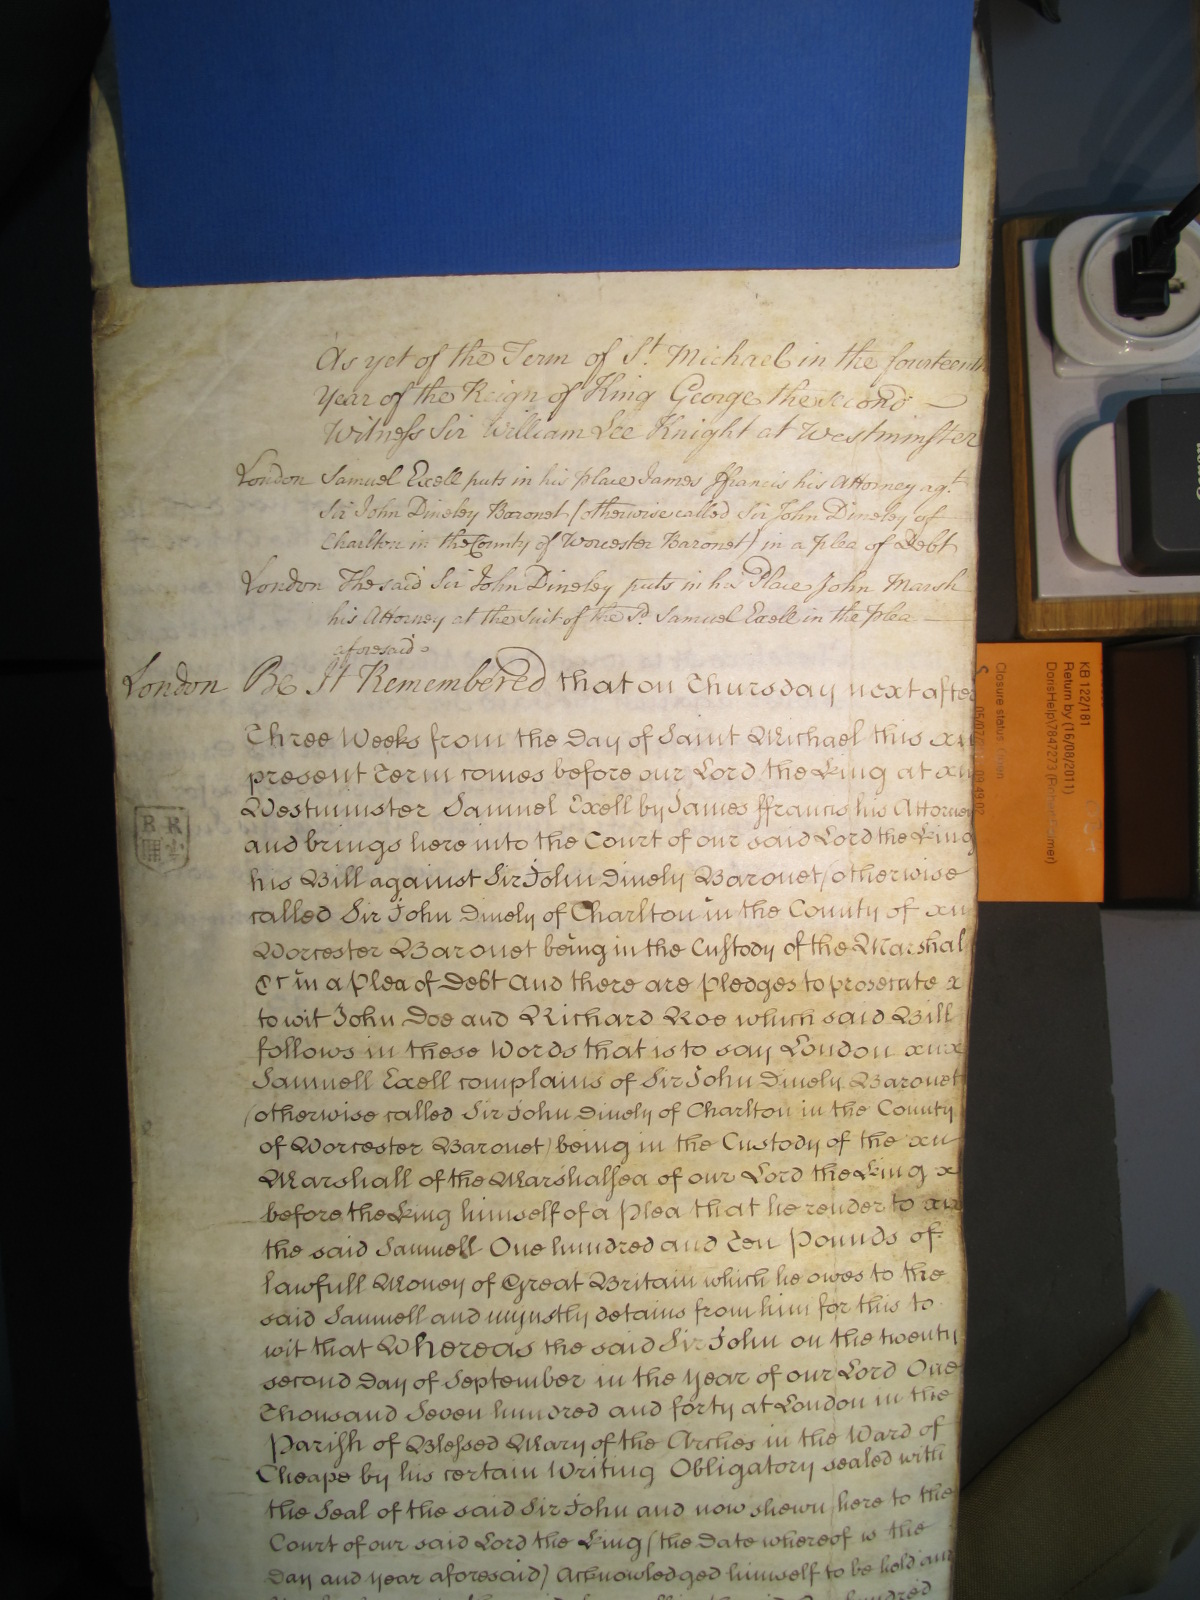 As yet of the Term of St. Michael in the fourteenth
Year of the Reign of King George the second
Witness Sir William Lee Knight at Westminster
London Samuel Exell puts in his place James ffrancis his Attorney agt.
Sir John Dineley Baronet (otherwise called Sir John Dineley of
Charlton in the County of Worcester Baronet) in a plea of Debt
London The said Sir John Dineley puts in his Place John Marsh
his Attorney at the Suit of the sd. Samuel Exell in the plea
aforesaid
London Be It Remembered that on Thursday next after
Three Weeks from the Day of Saint Michael this
present Term comes before our Lord the King at
Westminster Samuel Exell by James ffrancis his Attorney
and brings here into the Court of our said Lord the King
his Bill against Sir John Dinely Baronet (otherwise
called Sir John Dinely of Charlton in the County of
Worcester Baronet being in the Custody of the Marshal
&c in a Plea of Debt and there are pledges to prosecute
to wit John Doe and Richard Roe which said Bill
follows in these Words that is to say London
Samuell Exell complains of Sir John Dinely Baronet
(otherwise called Sir John Dinely of Charlton in the County
of Worcester Baronet) being in the Custody of the
Marshall of the Marshalsea of our Lord the King
before the King himself of a plea that he render to
the said Samuell One hundred and Ten pounds of
lawfull Money of Great Britain which he owes to the
said Samuell and unjustly detains from him for this to
wit that Whereas the said Sir John on the twenty
second Day of September in the year of our Lord One
Thousand Seven hundred and forty at London in the
Parish of Blessed Mary of the Arches in the Ward of
Cheape by his certain Writing Obligatory sealed with
the Seal of the said Sir John and now shewn here to the
Court of our said Lord the King (the Date whereof is the
Day and year aforesaid) Acknowledged himself to be held and
hundred
R R
KB 122/181
Return by (16/08/2011)
Closure status: Open